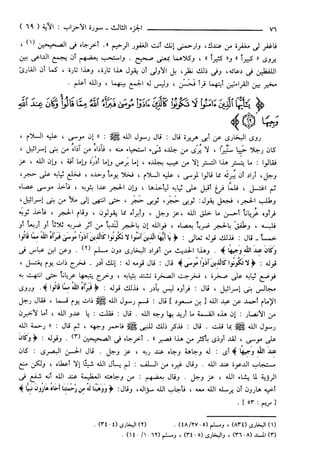 ٧٦ الجزء الثالث ـ سورة الأحزاب: الآية (٦٩)
فاغفر لي مغفرة من عندك، وارحمني إنك أنت الغفور الرحيم». أخرجاه في الصحيحين (١)،
يروى «كبيراً» و«كثيراً»، وكلاهما بمعنى صحيح. واستحب بعضهم أن يجمع الداعي بين
اللفظين في دعائه، وفي ذلك نظر، بل الأولى أن يقول هذا تارة، وهذا تارة، كما أن القارىء
مخير بين القراءتين أيتهما قرأ فحسن، وليس له الجمع بينهما، والله أعلم.
يَا أَيُّهَا الَّذِينَ آمَنُوا لَا تَكُونُوا كَالَّذِينَ آذَوْا مُوسَىٰ فَبَرَّأَهُ اللَّهُ مِمَّا قَالُوا وَكَانَ عِندَ اللَّهِ
وَجِيهًا
روى البخاري عن أبي هريرة قال: قال رسول الله ﷺ: «إن موسى، عليه السلام،
كان رجلا حييّاً ستّيراً، لا يُرَى من جلده شيء استحياء منه، فآذاه من آذاه من بني إسرائيل،
فقالوا: ما يتستر هذا التستر إلا من عيب بجلده، إما برص وإما أُدْرَة وإما آفة، وإن الله، عز
وجل، أراد أن يُبرئه مما قالوا لموسى، عليه السلام، فخلا يوماً وحده، فخلع ثيابه على حجر،
ثم اغتسل، فلما فرغ أقبل على ثيابه ليأخذها، وإن الحجر عدا بثوبه، فأخذ موسى عصاه
وطلب الحجر، فجعل يقول: ثوبي حجر، ثوبي حجر، حتى انتهى إلى ملأ من بني إسرائيل،
فرأوه عُرياناً أحسن ما خلق الله، عز وجل، وأبرأه مما يقولون، وقام الحجر، فأخذ ثوبه
فلبسه، وطفق بالحجر ضرباً بعصاه، فوالله إن بالحجر لَنَدَباً من أثر ضربه ثلاثاً أو أربعاً أو
خمساً ـ قال: فذلك قوله تعالى: ﴿يا أيها الذين آمنوا لا تكونوا كالذين آذوا موسى فبرأه الله مما قالوا
وكان عند الله وجيهاً﴾. وهذا الحديث من أفراد البخاري دون مسلم (٢). وعن ابن عباس في
قوله: ﴿لا تكونوا كالذين آذوا موسى﴾ قال: قال قومه له: إنك آدر. فخرج ذات يوم يغتسل،
فوضع ثيابه على صخرة، فخرجت الصخرة تشتد بثيابه، وخرج يتبعها عرياناً حتى انتهت به
مجالس بني إسرائيل، قال: فرأوه ليس بآدر، فذلك قوله: ﴿فبرأه الله مما قالوا﴾. وروى
الإمام أحمد عن عبد الله [بن مسعود] قال: قسم رسول الله ﷺ ذات يوم قسما، فقال رجل
من الأنصار: إن هذه القسمة ما أريد بها وجه الله. قال: فقلت: يا عدو الله، أما لأخبرن
رسول الله ﷺ بما قلت. قال: فذكر ذلك للنبي ﷺ فاحمر وجهه، ثم قال: «رحمة الله
على موسى، لقد أوذي بأكثر من هذا فصبر». أخرجاه في الصحيحين (٣). وقوله: ﴿وكان
عند الله وجيهاً﴾ أي: له وجاهة وجاه عند ربه، عز وجل. قال الحسن البصري: كان
مستجاب الدعوة عند الله. وقال غيره من السلف: لم يسأل الله شيئاً إلا أعطاه، ولكن منع
الرؤية لما يشاء الله، عز وجل. وقال بعضهم: من وجاهته العظيمة عند الله أنه شفع في
أخيه هارون أن يرسله الله معه، فأجاب الله سؤاله، وقال: ﴿ووهبنا له من رحمتنا أخاه هارون نبياً﴾
[مريم: ٥٣].
(١) البخاري (٨٣٤)، ومسلم (٤٨/٢٧٠٥). (٢) البخاري (٣٤٠٤).
(٣) المسند (٣٦٠٨)، والبخاري (٣٤٠٥)، ومسلم (١٠٦٢/١٤٠).